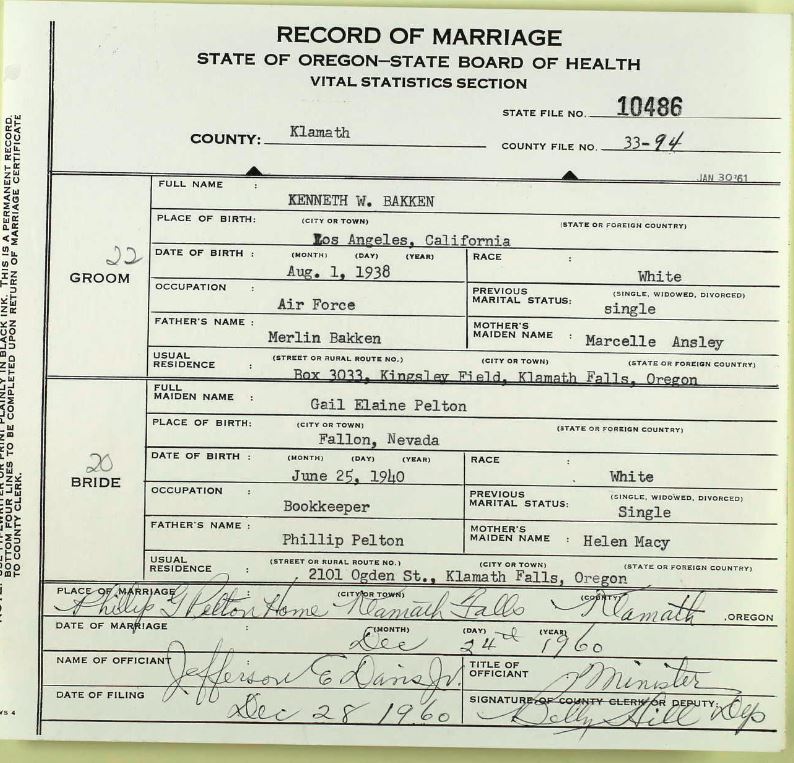 RECORD OF MARRIAGE
STATE OF OREGON—STATE BOARD OF HEALTH
VITAL STATISTICS SECTION
STATE FILE NO. 10486
COUNTY: Klamath
COUNTY FILE NO. 33-94
JAN 30 '61
GROOM 22
FULL NAME : KENNETH W. BAKKEN
PLACE OF BIRTH: (CITY OR TOWN) (STATE OR FOREIGN COUNTRY)
Los Angeles, California
DATE OF BIRTH : (MONTH) (DAY) (YEAR) RACE :
Aug. 1, 1938 White
OCCUPATION : Air Force
PREVIOUS MARITAL STATUS: (SINGLE, WIDOWED, DIVORCED) single
FATHER'S NAME : Merlin Bakken
MOTHER'S MAIDEN NAME : Marcelle Ansley
USUAL RESIDENCE : (STREET OR RURAL ROUTE NO.) (CITY OR TOWN) (STATE OR FOREIGN COUNTRY)
Box 3033, Kingsley Field, Klamath Falls, Oregon
BRIDE 20
FULL MAIDEN NAME : Gail Elaine Pelton
PLACE OF BIRTH: (CITY OR TOWN) (STATE OR FOREIGN COUNTRY)
Fallon, Nevada
DATE OF BIRTH : (MONTH) (DAY) (YEAR) RACE :
June 25, 1940 White
OCCUPATION : Bookkeeper
PREVIOUS MARITAL STATUS: (SINGLE, WIDOWED, DIVORCED) Single
FATHER'S NAME : Phillip Pelton
MOTHER'S MAIDEN NAME : Helen Macy
USUAL RESIDENCE : (STREET OR RURAL ROUTE NO.) (CITY OR TOWN) (STATE OR FOREIGN COUNTRY)
2101 Ogden St., Klamath Falls, Oregon
PLACE OF MARRIAGE (CITY OR TOWN) (COUNTY)
Phillip G Pelton Home Klamath Falls Klamath , OREGON
DATE OF MARRIAGE : (MONTH) (DAY) (YEAR)
Dec 24th 1960
NAME OF OFFICIANT Jefferson E Davis Jr.
TITLE OF OFFICIANT Minister
DATE OF FILING Dec 28 1960
SIGNATURE OF COUNTY CLERK OR DEPUTY: Betty Hill Dep
TYPEWRITER OR PRINT PLAINLY IN BLACK INK. THIS IS A PERMANENT RECORD.
BOTTOM FOUR LINES TO BE COMPLETED UPON RETURN OF MARRIAGE CERTIFICATE
TO COUNTY CLERK.
VS 4